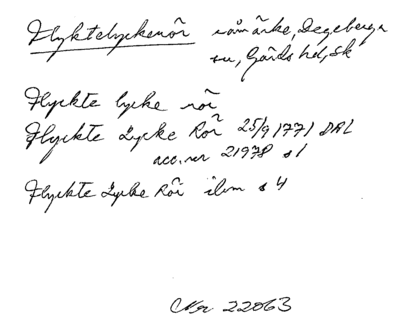 Flyktelyckerör råmärke, Degeberga
sn, Gärds hd, Sk
Flyckte lycke rör
Flyckte Lycke Rör 25/9 1771 DAL
acc.nr 21978 s 1
Flyckte Lycke Rör ibm s 4
Nr 22063